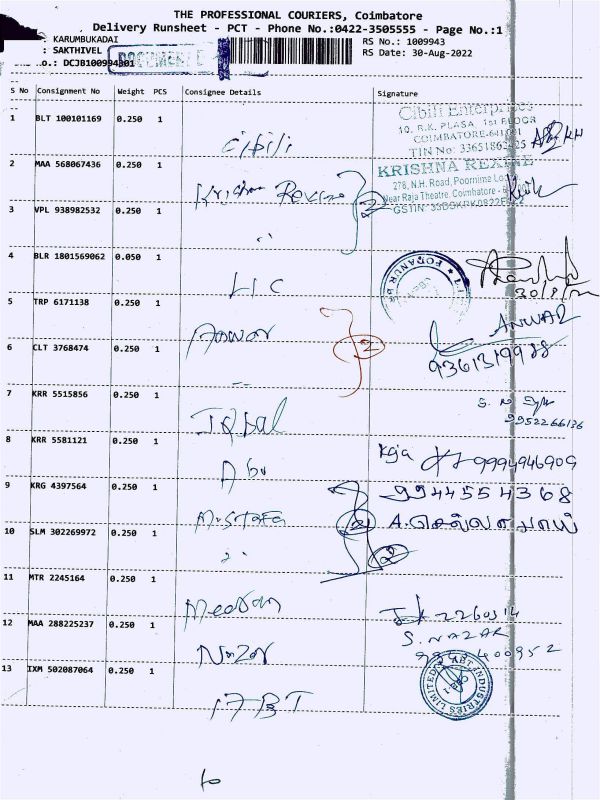 THE PROFESSIONAL COURIERS, Coimbatore
Delivery Runsheet - PCT - Phone No.:0422-3505555 - Page No.:1
: KARUMBUKADAI
: SAKTHIVEL
RS No.: 1009943
RS Date: 30-Aug-2022
S No Consignment No Weight PCS Consignee Details Signature
1 BLT 100101169 0.250 1 Cibili
Cibili Enterprises
10, R.K. PLASA, 1st FLOOR
COIMBATORE-641
TIN No: 33651862 25
2 MAA 568067436 0.250 1 Krishna Rexine 2
KRISHNA REXINE
278, N.H. Road, Poornime
Near Raja Theatre, Coimbatore
GSTIN
3 VPL 938982532 0.250 1 "
4 BLR 1801569062 0.050 1 LIC
PODANUR
5 TRP 6171138 0.250 1 Anwar 2
ANWAR
6 CLT 3768474 0.250 1
9361319988
7 KRR 5515856 0.250 1 Iqbal
9952266136
8 KRR 5581121 0.250 1 Abu
Raja 9994946909
9 KRG 4397564 0.250 1 Mustafa 2
9944554368
10 SLM 302269972 0.250 1 2
11 MTR 2245164 0.250 1 Meeran
12 MAA 288225237 0.250 1 Nazar
S. NAZAR
13 IXM 502087064 0.250 1 ABT
ABT INDUSTRIES LIMITED